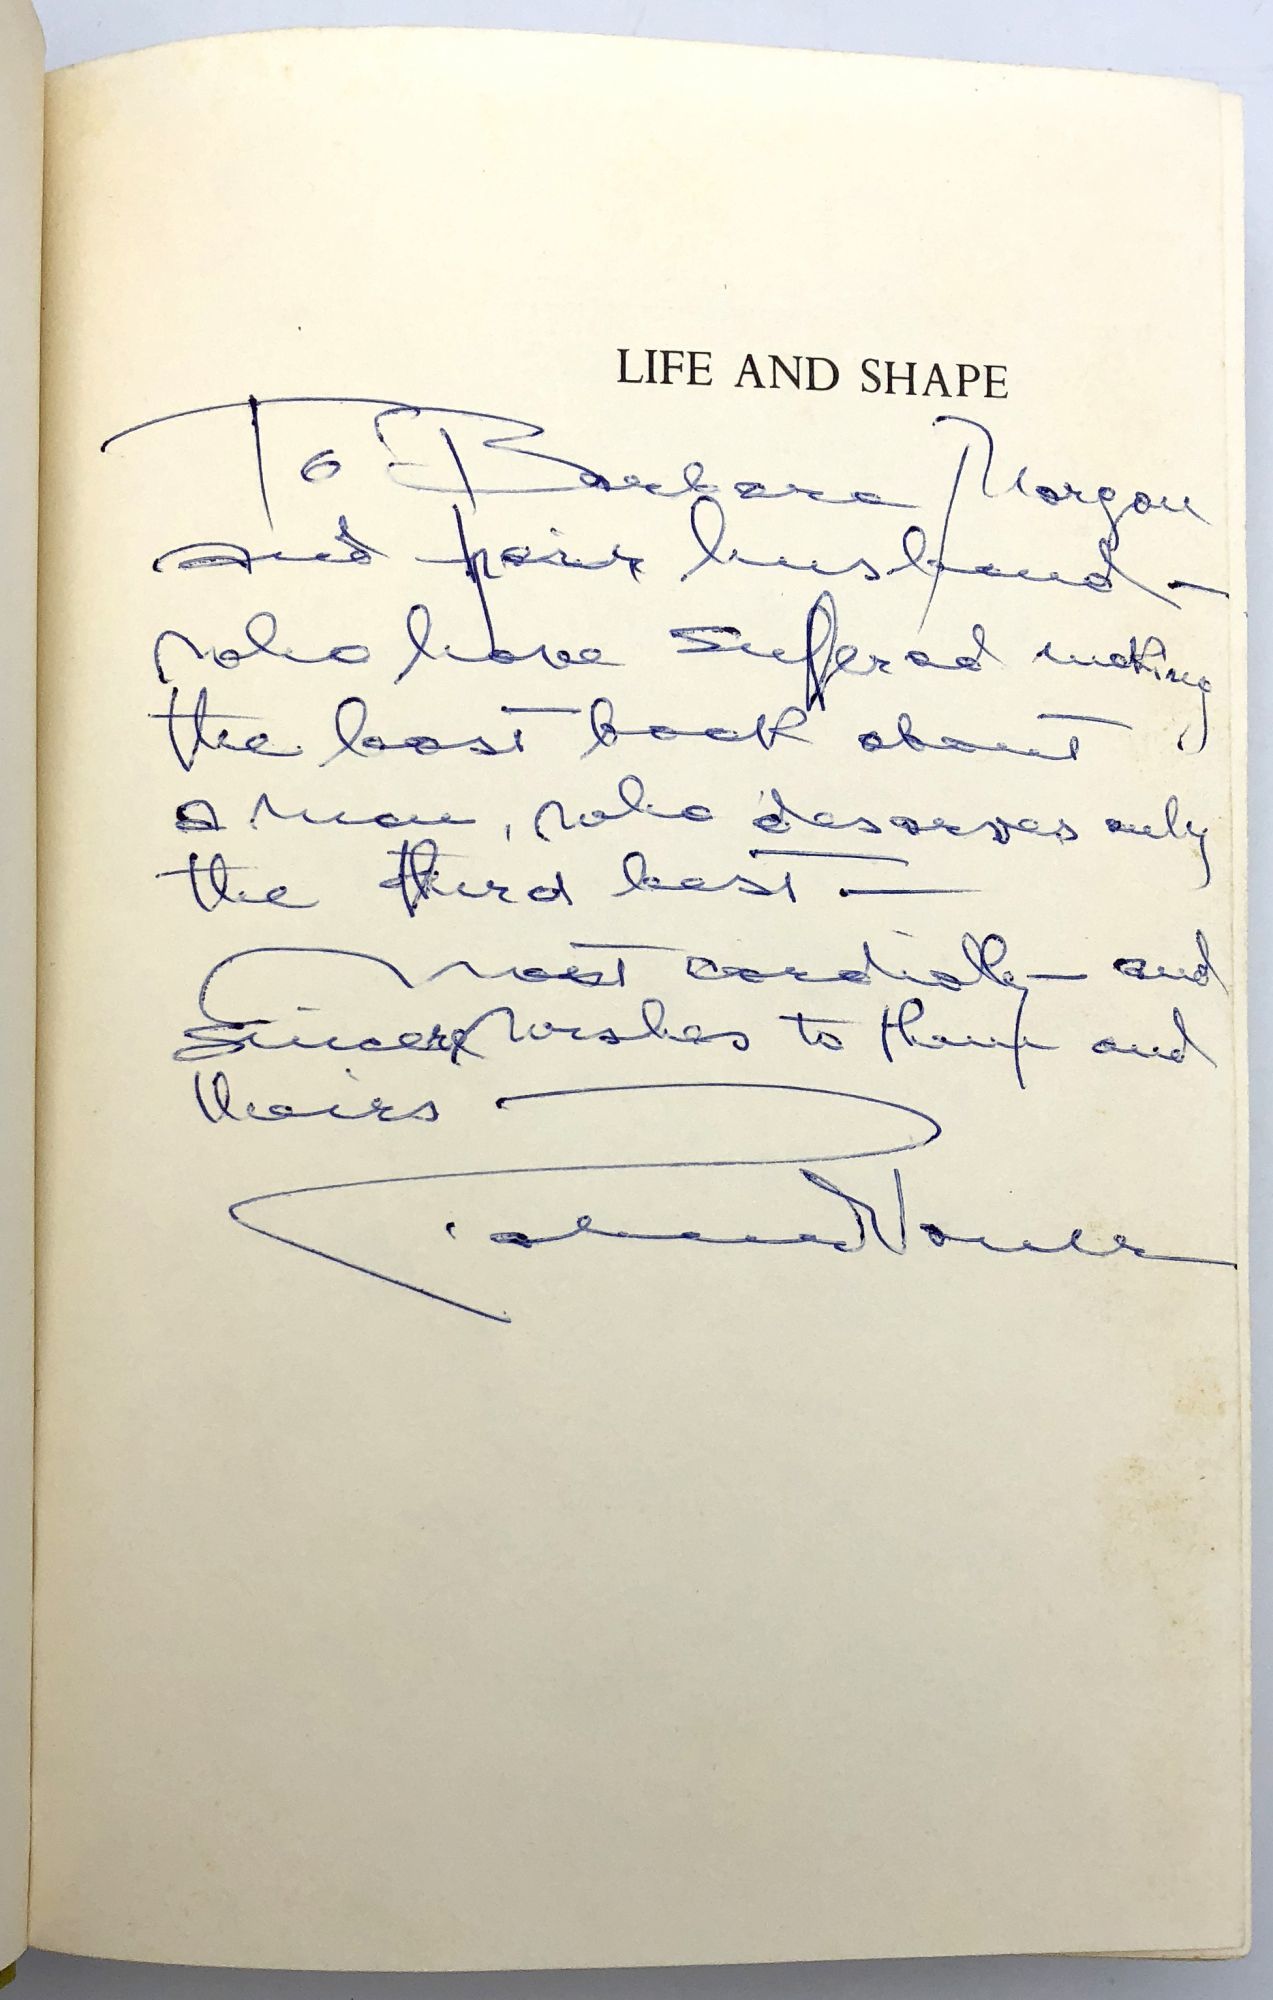 LIFE AND SHAPE
To Barbara Morgan
and husband —
who have suffered making
the best book about
a man, who deserves only
the third best —
Most cordially — and
sincere wishes to them and
theirs
Richard Neutra